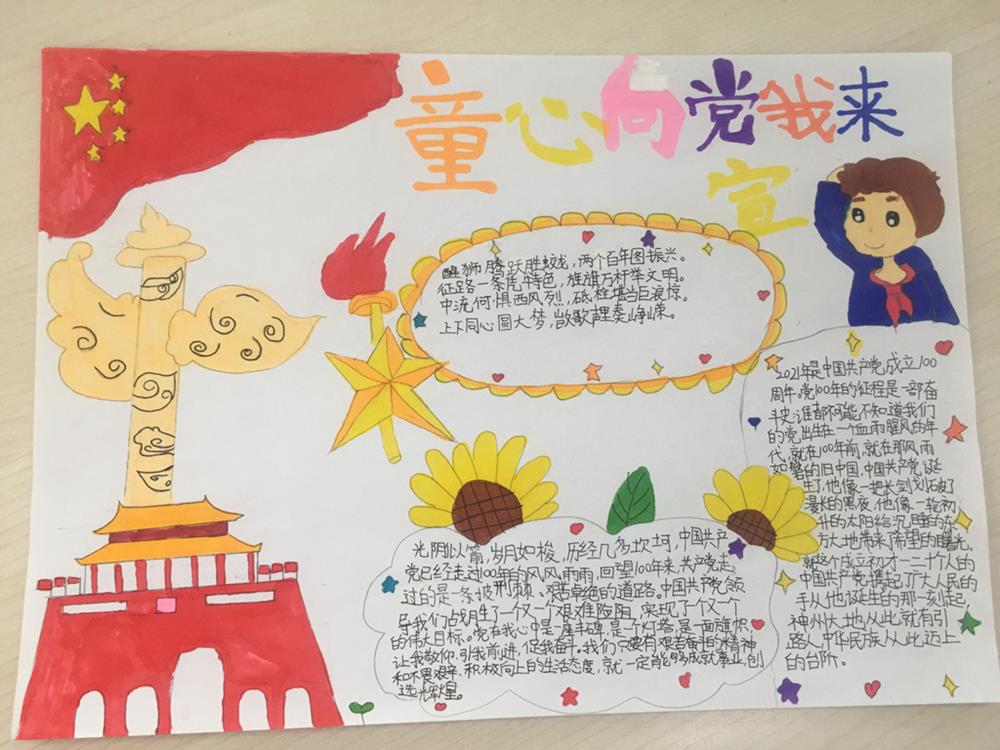 童心向党我来
宣
醒狮腾跃胜蛟龙,两个百年图振兴。
征路一条凭特色,旌旗万杆举文明。
中流何惧西风烈,砥柱堪当巨浪惊。
上下同心圆大梦,敢歌声里奏峥嵘。
2021年是中国共产党成立100
周年。党100年的征程是一部奋
斗史,谁都不可能不知道我们
的党出生在一个血雨腥风的年
代,就在100年前,就在那风雨
如磐的旧中国,中国共产党诞
生了,他像一把长剑划破了
漫长的黑夜,他像一轮初
升的太阳给沉里的东
方大地带来希里的曙光。
就这个成立初才一二十个人的
中国共产党,携起了广大人民的
手从他诞生的那一刻起,
神州大地从此就有引
路人,中华民族从此迈上
的台阶。
光阴以箭,岁月如梭,历经几多坎坷,中国共产
党已经走过100年的风风雨雨,回望100年来,共产党走
过的是一条披荆棘、艰苦卓绝的道路。中国共产党领
导我们战胜了一个又一个艰难险阻,实现了一个又一个
的伟大目标。党在我心中是一座丰碑,是一个灯塔,是一面旗帜
让我敬仰,引我前进,促我奋斗。我们只要有艰苦奋斗的精神
和不畏艰辛、积极向上的生活态度,就一定能够成就事业,创
造辉煌。